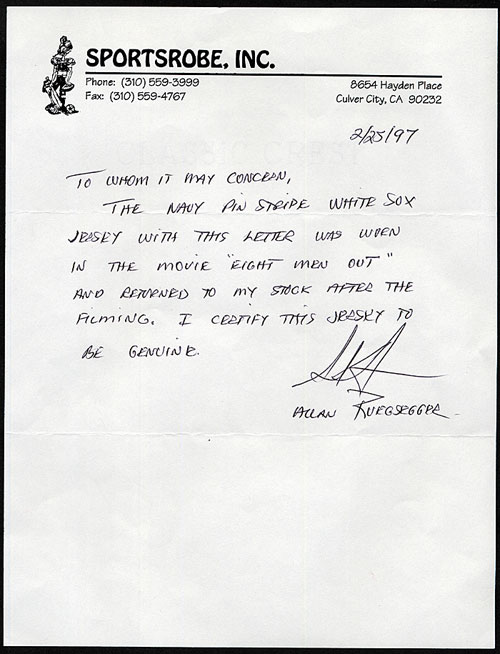 SPORTSROBE, INC.
Phone: (310) 559-3999
Fax: (310) 559-4767
8654 Hayden Place
Culver City, CA 90232
2/25/97
TO WHOM IT MAY CONCERN,
THE NAVY PIN STRIPE WHITE SOX
JERSEY WITH THIS LETTER WAS WORN
IN THE MOVIE "EIGHT MEN OUT"
AND RETURNED TO MY STOCK AFTER THE
FILMING. I CERTIFY THIS JERSEY TO
BE GENUINE.
ALLAN RUEGSEGGER